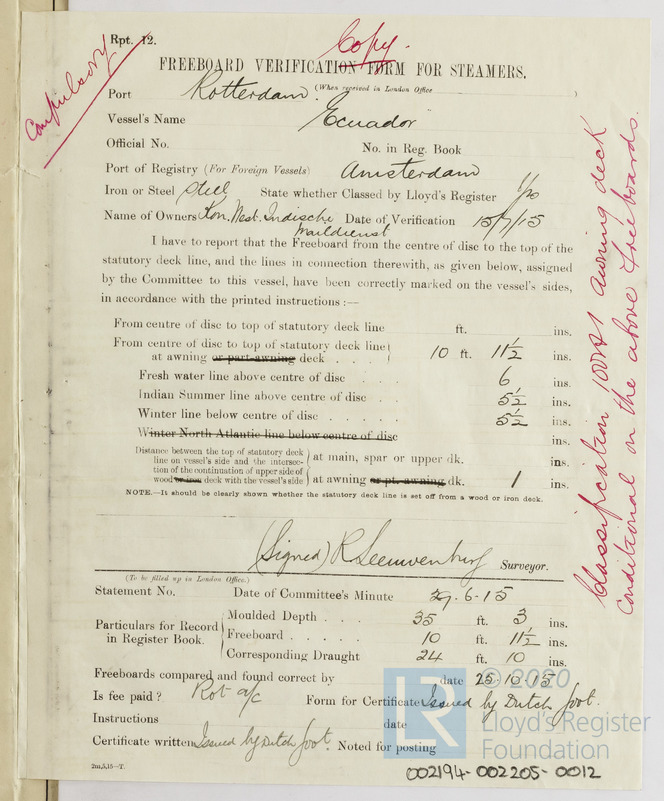 Compulsory
Rpt. 12.
Copy.
FREEBOARD VERIFICATION FORM FOR STEAMERS.
Port Rotterdam. (When received in London Office )
Vessel's Name "Ecuador"
Official No. No. in Reg. Book
Port of Registry (For Foreign Vessels) Amsterdam
Iron or Steel Steel State whether Classed by Lloyd's Register
Name of Owners Kon. West. Indische Maildienst Date of Verification 15/7/15
I have to report that the Freeboard from the centre of disc to the top of the
statutory deck line, and the lines in connection therewith, as given below, assigned
by the Committee to this vessel, have been correctly marked on the vessel's sides,
in accordance with the printed instructions :—
From centre of disc to top of statutory deck line ft. ins.
From centre of disc to top of statutory deck line
at awning or part-awning deck . . . . 10 ft. 11½ ins.
Fresh water line above centre of disc . . . . 6 ins.
Indian Summer line above centre of disc . . 5½ ins.
Winter line below centre of disc . . . . . 5½ ins.
Winter North Atlantic line below centre of disc ins.
Distance between the top of statutory deck
line on vessel's side and the intersec-
tion of the continuation of upper side of
wood or iron deck with the vessel's side
at main, spar or upper dk. ins.
at awning or pt. awning dk. 1 ins.
NOTE.—It should be clearly shown whether the statutory deck line is set off from a wood or iron deck.
(Signed) R Leeuwenburg Surveyor.
(To be filled up in London Office.)
Statement No. Date of Committee's Minute 29.6.15
Particulars for Record
in Register Book.
Moulded Depth . . . 35 ft. 3 ins.
Freeboard . . . . . 10 ft. 11½ ins.
Corresponding Draught 24 ft. 10 ins.
Freeboards compared and found correct by date 25.10.15
Is fee paid ? Rot a/c Form for Certificate Issued by Dutch Govt.
Instructions date
Certificate written Issued by Dutch Govt. Noted for posting
2m,5,15—T.
Classification 100A1 awning deck
conditional on the above freeboards.
© 2020
LR
Lloyd's Register
Foundation
002194-002205-0012